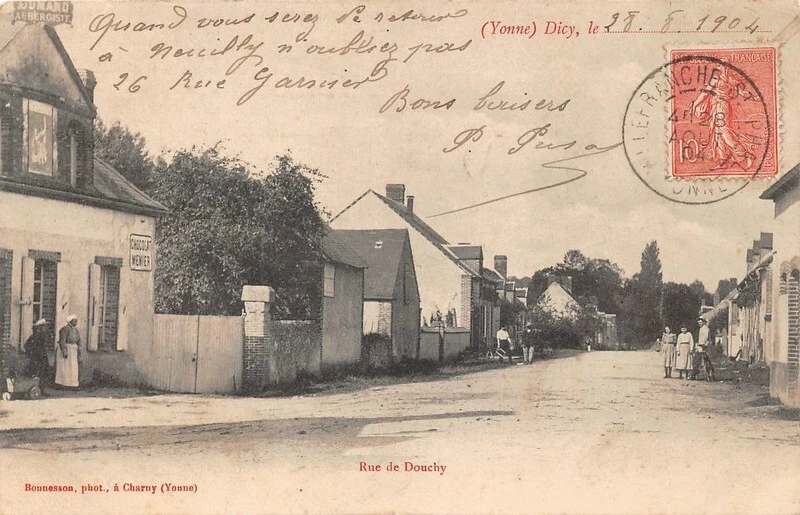 DUMAND
AUBERGISTE
Quand vous serez de retour
à Neuilly n'oubliez pas
26 Rue Garnier
Bons baisers
(Yonne) Dicy, le 28. 8. 1904
FRANÇAISE
10
VILLEFRANCHE-ST
28
AOÛT
04
YONNE
CHOCOLAT
MENIER
Rue de Douchy
Bonnesson, phot., à Charny (Yonne)